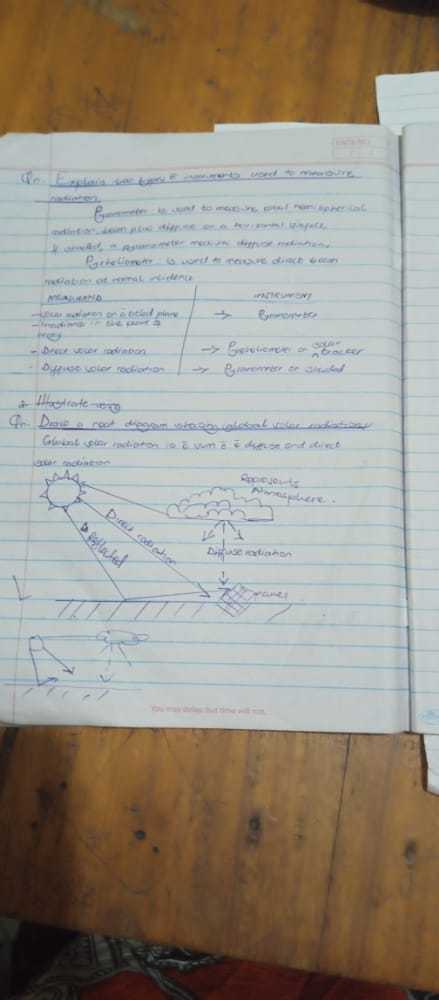 Qn. Explain two types instruments used to measure
radiation.
Pyranometer is used to measure total hemispherical
radiation beam plus diffuse on a horizontal surface.
If shaded, a pyranometer measures diffuse radiation.
Pyrheliometer is used to measure direct beam
radiation at normal incidence
MEASURAND INSTRUMENT
- Solar radiation on a tilted plane → Pyranometer
- Irradiance in the plane of
array
- Direct solar radiation → Pyrheliometer or solar tracker
Diffuse solar radiation → Pyranometer or shaded
Qn. Draw a neat diagram showing global solar radiation
Global solar radiation is sum diffuse and direct
solar radiation
Represents
Atmosphere.
Direct radiation
Reflected
Diffuse radiation
panel
You may delay, but time will not.